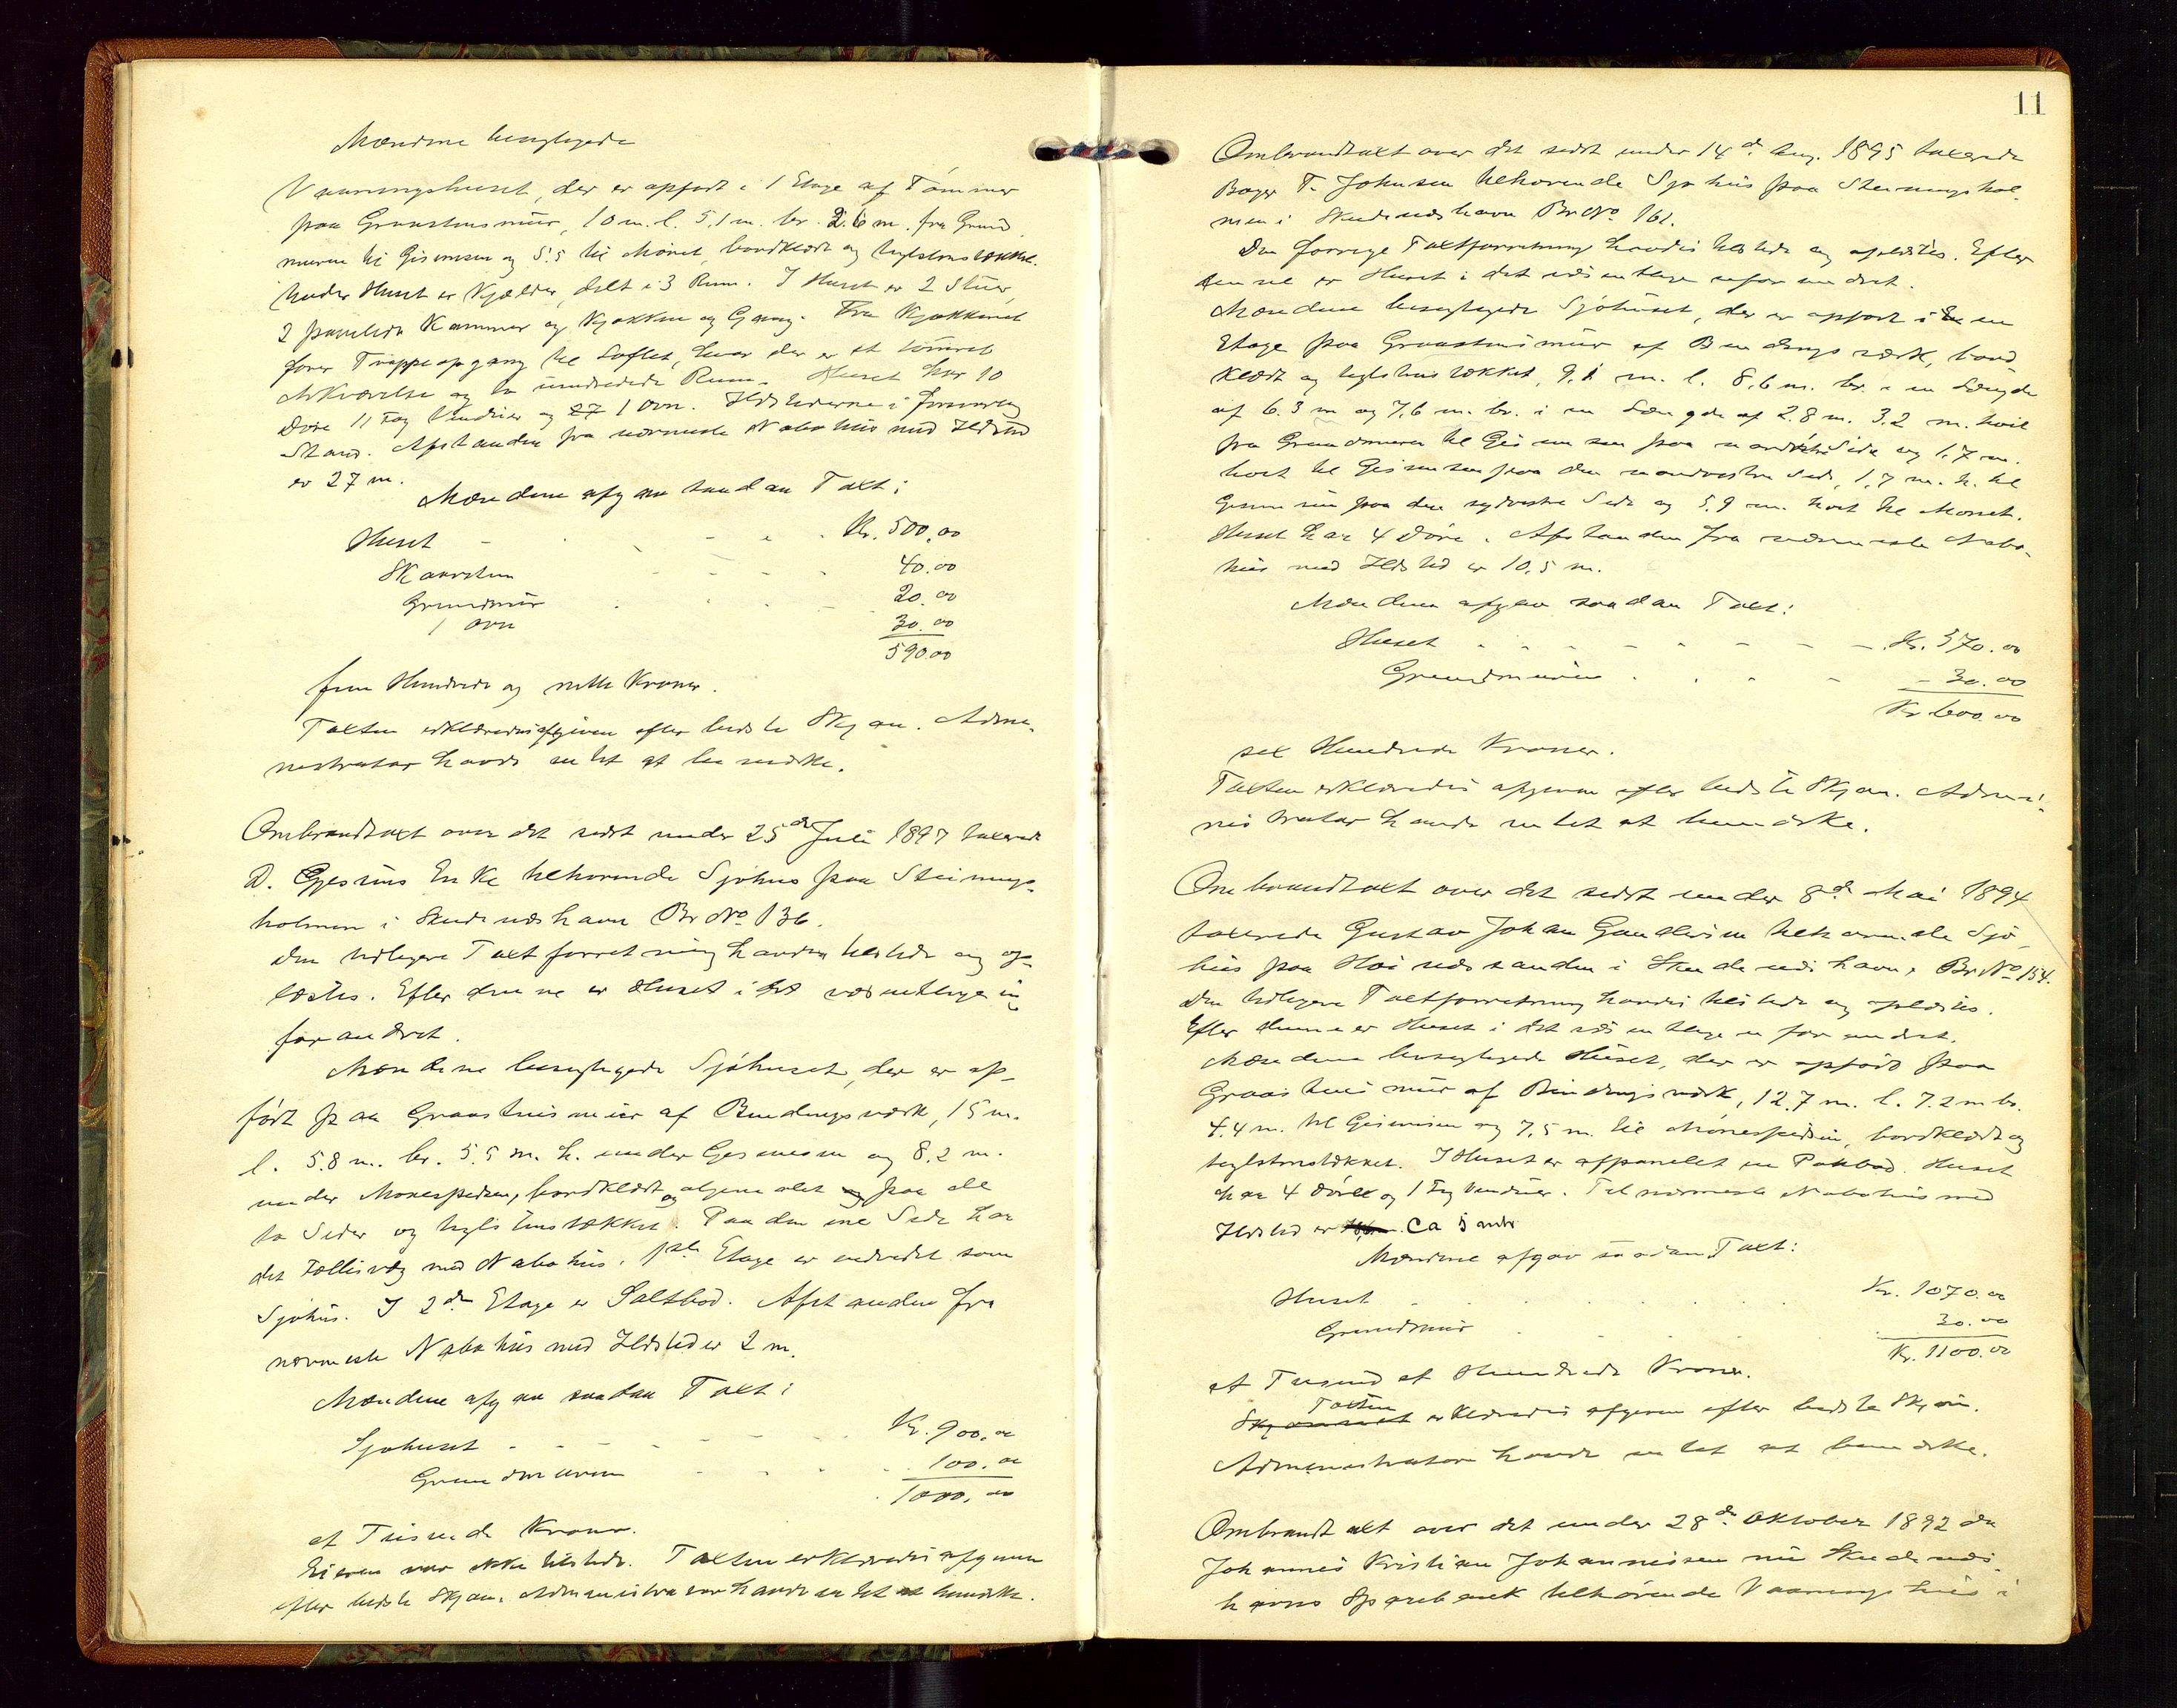 Mændene besigtigede
Vaaningshuset, der er opført i 1 Etage af Tømmer
paa Graastensmur, 10 m. l. 5,1 m. br. 2.6 m. fra Grund
muren til Gesimsen og 5.5 til Mønet, bordklædt og teglstenstækket.
Under Huset er Kjælder, delt i 3 Rum. I Huset er 2 Stuer,
2 panelede Kammer og Kjøkken og Gang. Fra Kjøkkenet
fører Trappeopgang til Loftet, hvor der er et tømret
Arkværelse og to indredede Rum. Huset har 10
Døre 11 Fag Vinduer og 1 Ovn. Ildstederne i forsvarlig
Stand. Afstanden fra nærmeste Nabohus med Ildsted
er 27 m.
Mændene afgav saadan Taxt:
Huset Kr. 500,00
Skorsten 40.00
Grundmur 20.00
1 Ovn 30.00
590.00
fem Hundrede og nitti Kroner.
Taxten erklæredes afgiven efter bedste Skjøn. Admi-
nistrator havde intet at bemærke.
Ombrandtaxt over det sidst under 25de Juli 1897 taxerede
D. Gjesius Enke tilhørende Sjøhus paa Steinings-
holmen i Skudeneshavn Br No 136.
Den tidligere Taxtforretning havdes tilstede og op-
læstes. Efter denne er Huset i det væsentlige u-
forandret.
Mændene besigtigede Sjøhuset, der er op-
ført paa Graastensmur af Bindingsværk, 15 m.
l. 5.8 m. br. 5.5 m. h. under Gesimsen og 8.2 m.
under Mønespidsen, bordklædt og oljemalet paa alle
to Sider og teglstenstækket. Paa den ene Side har
det Fællesvæg med Nabohus. 1ste Etage er indredet som
Sjøhus. I 2den Etage er Saltbod. Afstanden fra
nærmeste Nabohus med Ildsted er 2 m.
Mændene afgav saadan Taxt:
Sjøhuset Kr. 900.00
Grundmuren 100.00
1000.00
et Tusende Kroner.
Eieren var ikke tilstede. Taxten erklæredes afgiven
efter bedste Skjøn. Administrator havde intet at bemærke.
11
Ombrandtaxt over det sidst under 14de Aug. 1895 taxerede
T. Johnsen tilhørende Sjøhus paa Steiningshol-
men i Skudeneshavn Br No 161.
Den forrige Taxtforretning havdes tilstede og oplæstes. Efter
denne er Huset i det væsentlige uforandret.
Mændene besigtigede Sjøhuset, der er opført i en
Etage paa Graastensmur af Bindingsværk, bord
klædt og teglstenstækket, 9,1 m. l. 8,6 m. br. i en Længde
af 6.3 m og 7,6 m. br. i en Længde af 2.8 m. 3,2 m. høit
fra Grundmuren til Gesimsen paa Side og 1,7 m.
høit til Gesimsen paa den nordvestre Side, 1,7 m. h. til
Gesimsen paa den sydvestre Side og 5,9 m. høit til Mønet.
Huset har 4 Døre. Afstanden fra nærmeste Nabo-
hus med Ildsted er 10,5 m.
Mændene afgav saadan Taxt:
Huset Kr. 570.00
Grundmuren 30.00
Kr 600.00
sex Hundrede Kroner.
Taxten erklæredes afgiven efter bedste Skjøn. Admi-
nistrator havde intet at bemærke.
Ombrandtaxt over det sidst under 8de Mai 1894
taxerede Gustav Johan Gundersen tilhørende Sjø-
hus paa Høinessanden i Skudeneshavn, Br No 154.
Den tidligere Taxtforretning havdes tilstede og oplæstes.
Efter denne er Huset i det væsentlige uforandret.
Mændene besigtigede Huset, der er opført paa
Graastensmur af Bindingsværk, 12,7 m. l. 7.2 m br.
4.4 m. til Gesimsen og 7,5 m. til Mønespidsen, bordklædt og
teglstenstækket. I Huset er afpanelet en Pakbod. Huset
har 4 Døre og 1 Fag Vinduer. Til nærmeste Nabohus med
Ildsted er ca 5 mtr
Mændene afgav saadan Taxt:
Huset Kr. 1070.00
Grundmur 30.00
Kr. 1100.00
et Tusend et Hundrede Kroner.
Taxten erklæredes afgiven efter bedste Skjøn.
Administrator havde intet at bemærke.
Ombrandtaxt over det under 28de Oktober 1892 da
Johannes Kristian Johannesen nu Skudenes-
havns Sparebank tilhørende Vaaningshus i